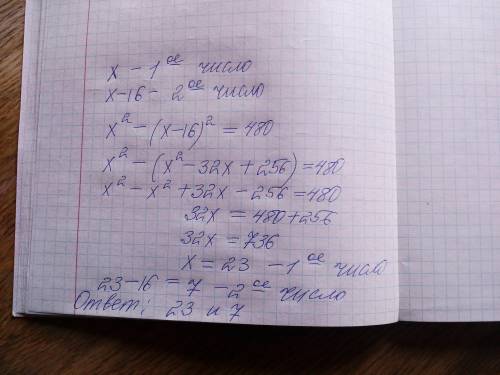 x - 1ое число
x-16 - 2ое число
x² - (x-16)² = 480
x² - (x² - 32x + 256) = 480
x² - x² + 32x - 256 = 480
32x = 480+256
32x = 736
x = 23 - 1ое число
23-16 = 7 - 2ое число
Ответ: 23 и 7